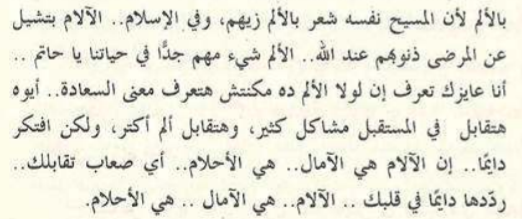 بالألم لأن المسيح نفسه شعر بالألم زيهم، وفي الإسلام.. الآلام بتشيل
عن المرضى ذنوبهم عند الله.. الألم شيء مهم جدًّا في حياتنا يا حاتم ..
أنا عايزك تعرف إن لولا الألم ده مكنتش هتعرف معنى السعادة.. أيوه
هتقابل في المستقبل مشاكل كثير، وهتقابل ألم أكتر، ولكن افتكر
دايمًا.. إن الآلام هي الآمال.. هي الأحلام.. أي صعاب تقابلك..
ردّدها دايمًا في قلبك .. الآلام.. هي الآمال .. هي الأحلام.